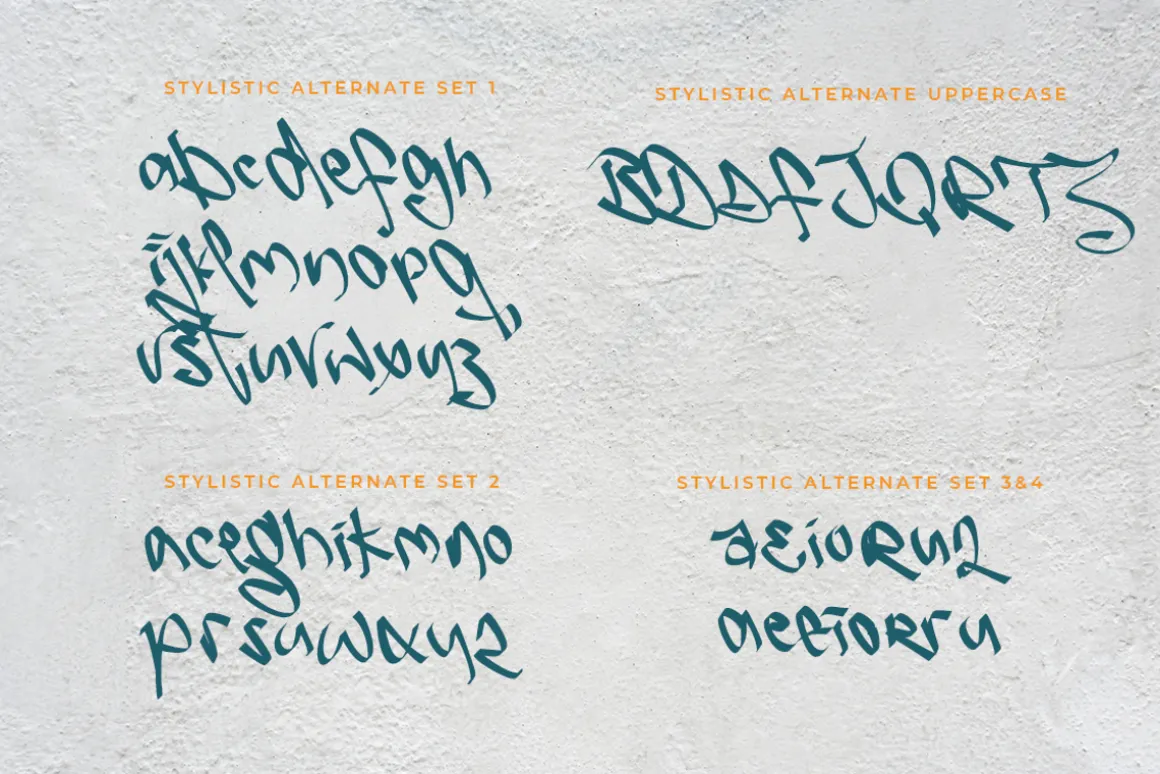 STYLISTIC ALTERNATE SET 1
abcdefgh
ijklmnopq
rstuvwxyz
STYLISTIC ALTERNATE UPPERCASE
STYLISTIC ALTERNATE SET 2
aceghikmno
prsuwxyz
STYLISTIC ALTERNATE SET 3&4
aeioruz